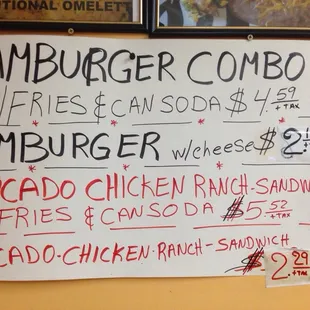 TIONAL OMELETT
AMBURGER COMBO
W/FRIES & CAN SODA $4.59 + TAX
AMBURGER w/cheese $2.1 + TA
CADO CHICKEN RANCH-SANDW
FRIES & CAN SODA $5.52 + TAX
CADO-CHICKEN-RANCH-SANDWICH
$2.29 + TAX